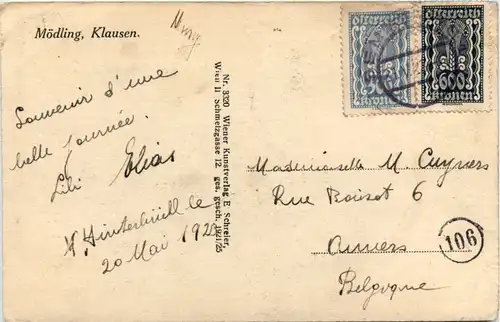 Mödling, Klausen.
Souvenir d'une
belle tournée.
Lili Elias
Hinterbrühl le
20 Mai 192
Nr. 3320 Wiener Kunstverlag E. Schreier,
Wien II Schmelzgasse 12. ges. gesch. 1921/25
österreich
kronen
österreich
600
kronen
Mademoiselle M. Cuyvers
Rue 6
Anvers
Belgique
106